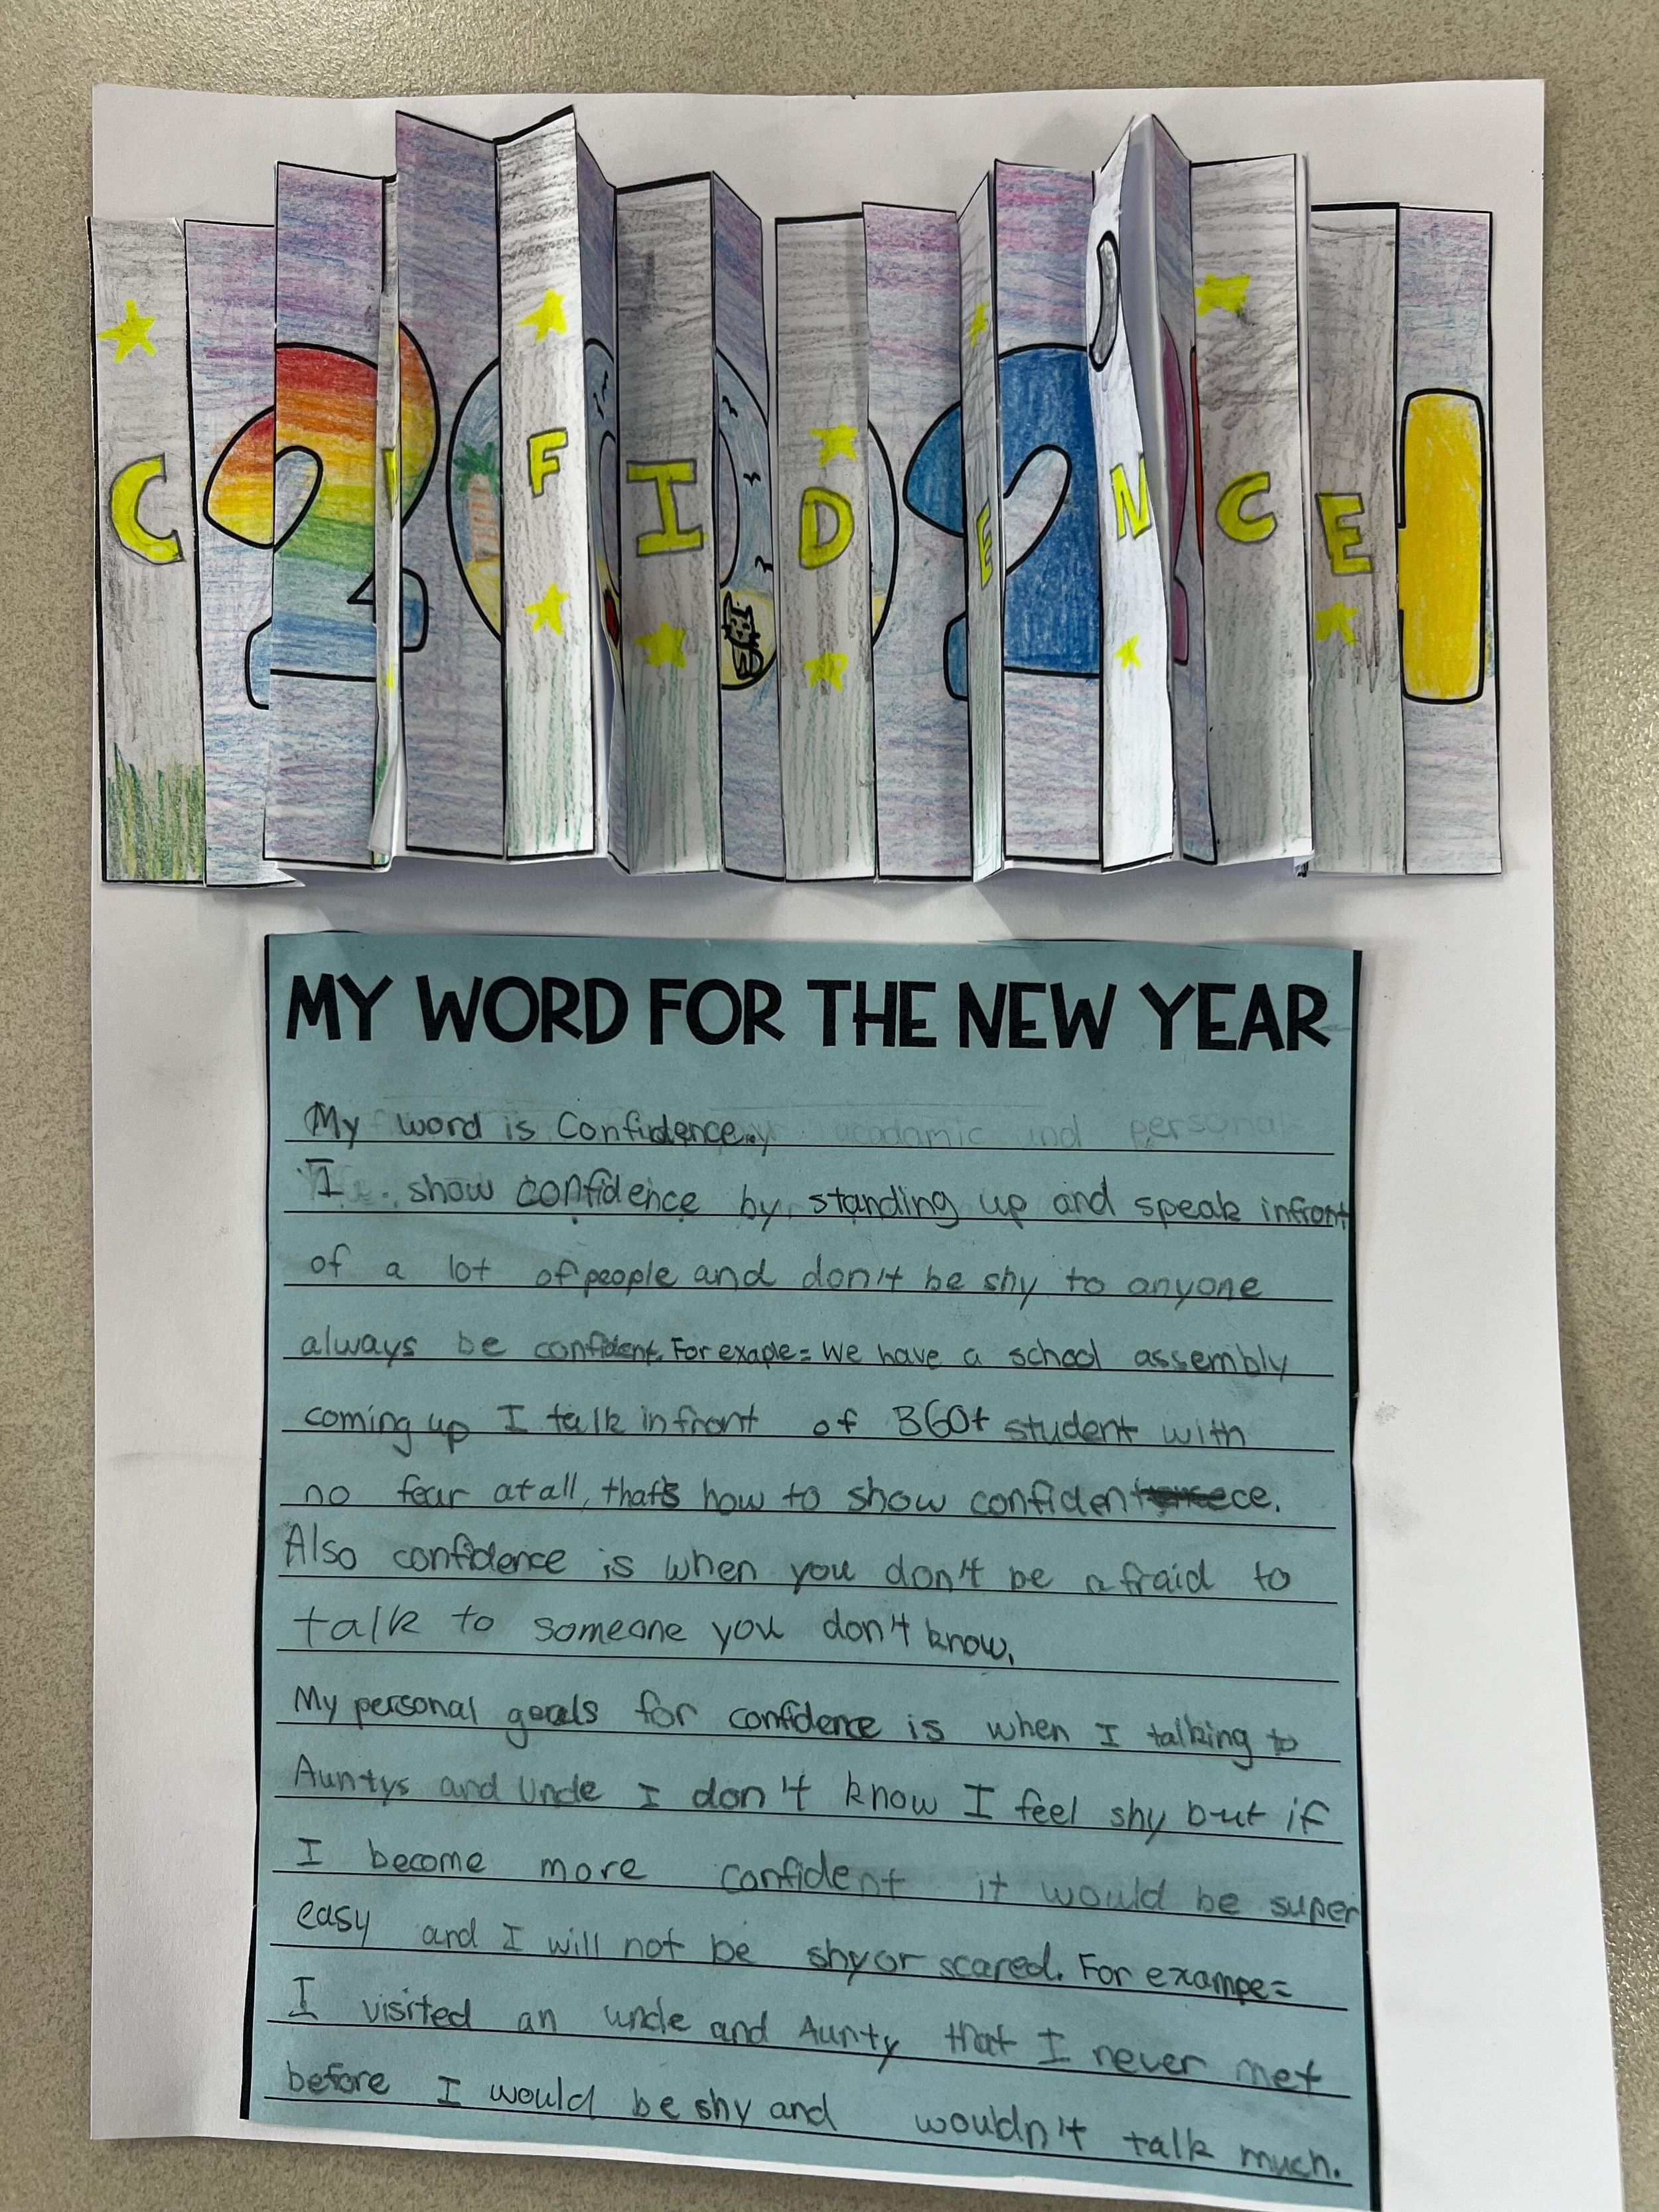 C F I D E N C E
2 0 2
MY WORD FOR THE NEW YEAR
My word is Confidence.
I show confidence by standing up and speak infront
of a lot of people and don't be shy to anyone
always be confident. For exaple= We have a school assembly
coming up I talk infront of 360+ student with
no fear at all, that's how to show confidentce.
Also confidence is when you don't be afraid to
talk to someone you don't know.
My personal goals for confidence is when I talking to
Auntys and Uncle I don't know I feel shy but if
I become more confident it would be super
easy and I will not be shy or scared. For exampe=
I visited an uncle and Aunty that I never met
before I would be shy and wouldn't talk much.